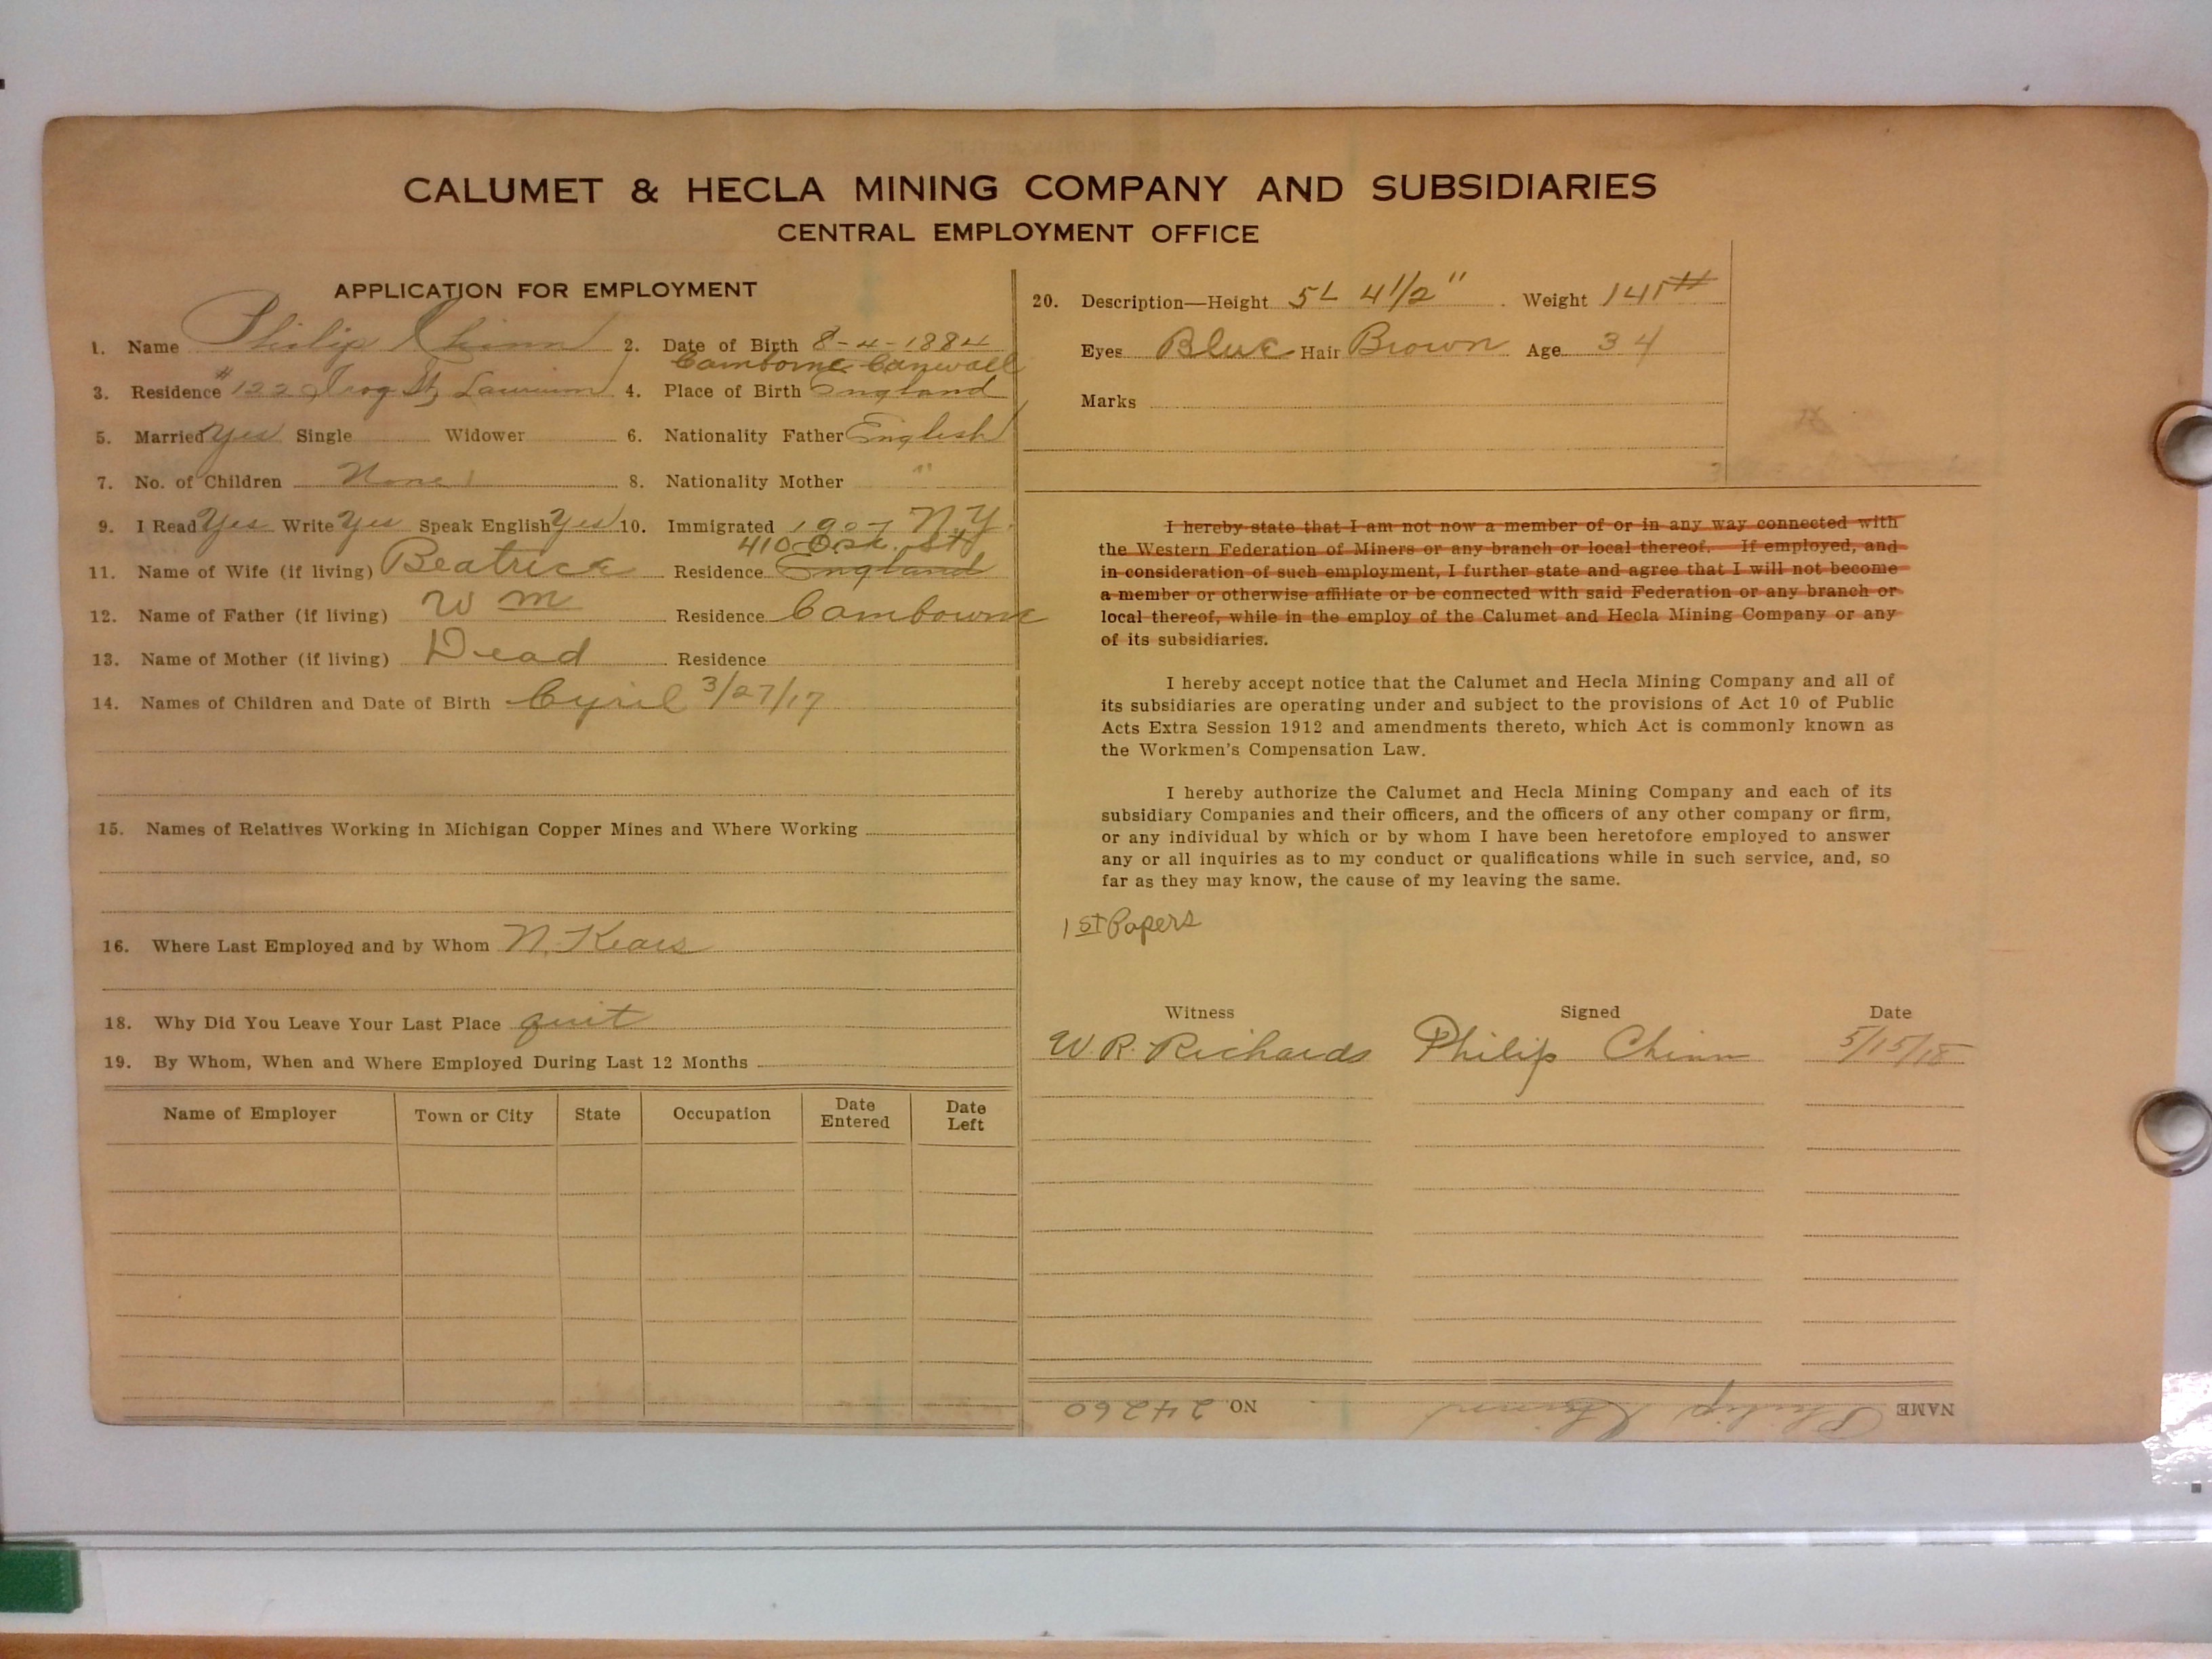 CALUMET & HECLA MINING COMPANY AND SUBSIDIARIES
CENTRAL EMPLOYMENT OFFICE
APPLICATION FOR EMPLOYMENT
1. Name Philip Chinn 2. Date of Birth 8-4-1884
Camborne Canwall
3. Residence #122 St, Laurium 4. Place of Birth England
5. Married Yes Single Widower 6. Nationality Father English
7. No. of Children None 1 8. Nationality Mother "
9. I Read Yes Write Yes Speak English Yes 10. Immigrated 1907 N.Y.
410 Osc. St
11. Name of Wife (if living) Beatrice Residence England
12. Name of Father (if living) Wm Residence Cambourne
13. Name of Mother (if living) Dead Residence
14. Names of Children and Date of Birth Cyril 3/27/17
15. Names of Relatives Working in Michigan Copper Mines and Where Working
16. Where Last Employed and by Whom N. Kears
18. Why Did You Leave Your Last Place quit
19. By Whom, When and Where Employed During Last 12 Months
Name of Employer Town or City State Occupation Date Entered Date Left
20. Description—Height 5L 4 1/2" Weight 141#
Eyes Blue Hair Brown Age 34
Marks
I hereby state that I am not now a member of or in any way connected with
the Western Federation of Miners or any branch or local thereof. If employed, and
in consideration of such employment, I further state and agree that I will not become
a member or otherwise affiliate or be connected with said Federation or any branch or
local thereof, while in the employ of the Calumet and Hecla Mining Company or any
of its subsidiaries.
I hereby accept notice that the Calumet and Hecla Mining Company and all of
its subsidiaries are operating under and subject to the provisions of Act 10 of Public
Acts Extra Session 1912 and amendments thereto, which Act is commonly known as
the Workmen's Compensation Law.
I hereby authorize the Calumet and Hecla Mining Company and each of its
subsidiary Companies and their officers, and the officers of any other company or firm,
or any individual by which or by whom I have been heretofore employed to answer
any or all inquiries as to my conduct or qualifications while in such service, and, so
far as they may know, the cause of my leaving the same.
1st Papers
Witness Signed Date
W. R. Richards Philip Chinn 5/15/18
NAME Philip Chinn NO. 24260